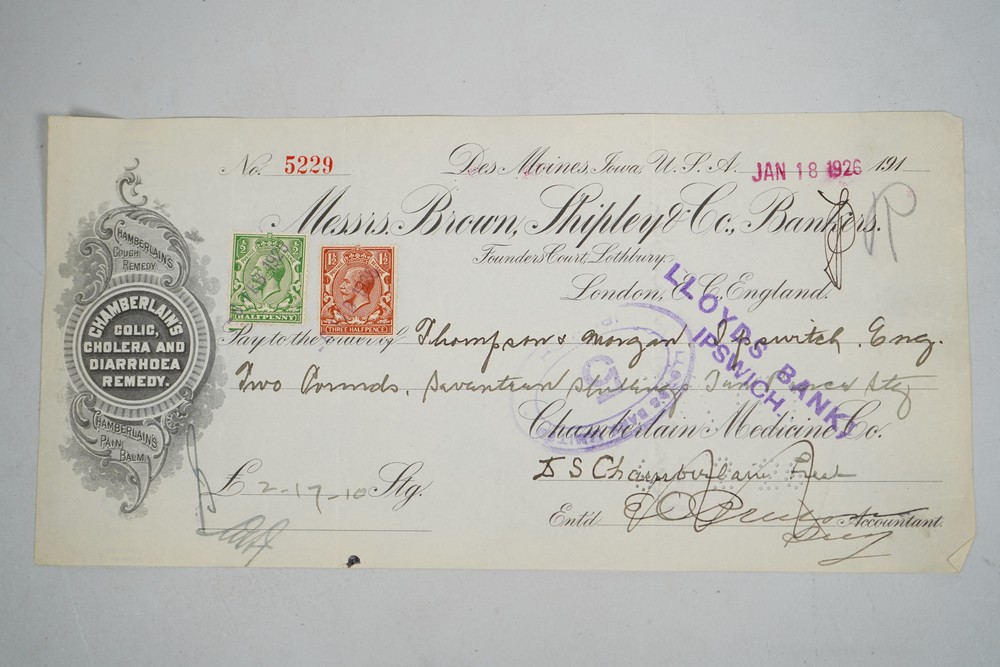 No. 5229
Des Moines, Iowa, U.S.A. JAN 18 1926 191
Messrs. Brown, Shipley & Co., Bankers.
Founders Court, Lothbury
London, E.C., England.
Pay to the order of Thompson & Morgan. Ipswitch. Eng.
Two Pounds, Seventeen Shillings Ten Pence Stg
Chamberlain Medicine Co.
D S Chamberlain Prest
£ 2-17-10 Stg.
Ent'd Accountant.
CHAMBERLAIN'S
COUGH
REMEDY
CHAMBERLAIN'S
COLIC,
CHOLERA AND
DIARRHOEA
REMEDY.
CHAMBERLAIN'S
PAIN
BALM
½ ½
HALFPENNY
1½ 1½
THREE HALFPENCE
LLOYDS BANK
IPSWICH.
LLOYDS BANK LIMITED